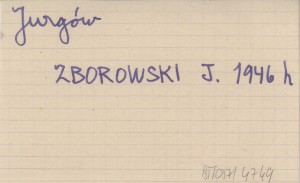 Jurgów
ZBOROWSKI J. 1946 h